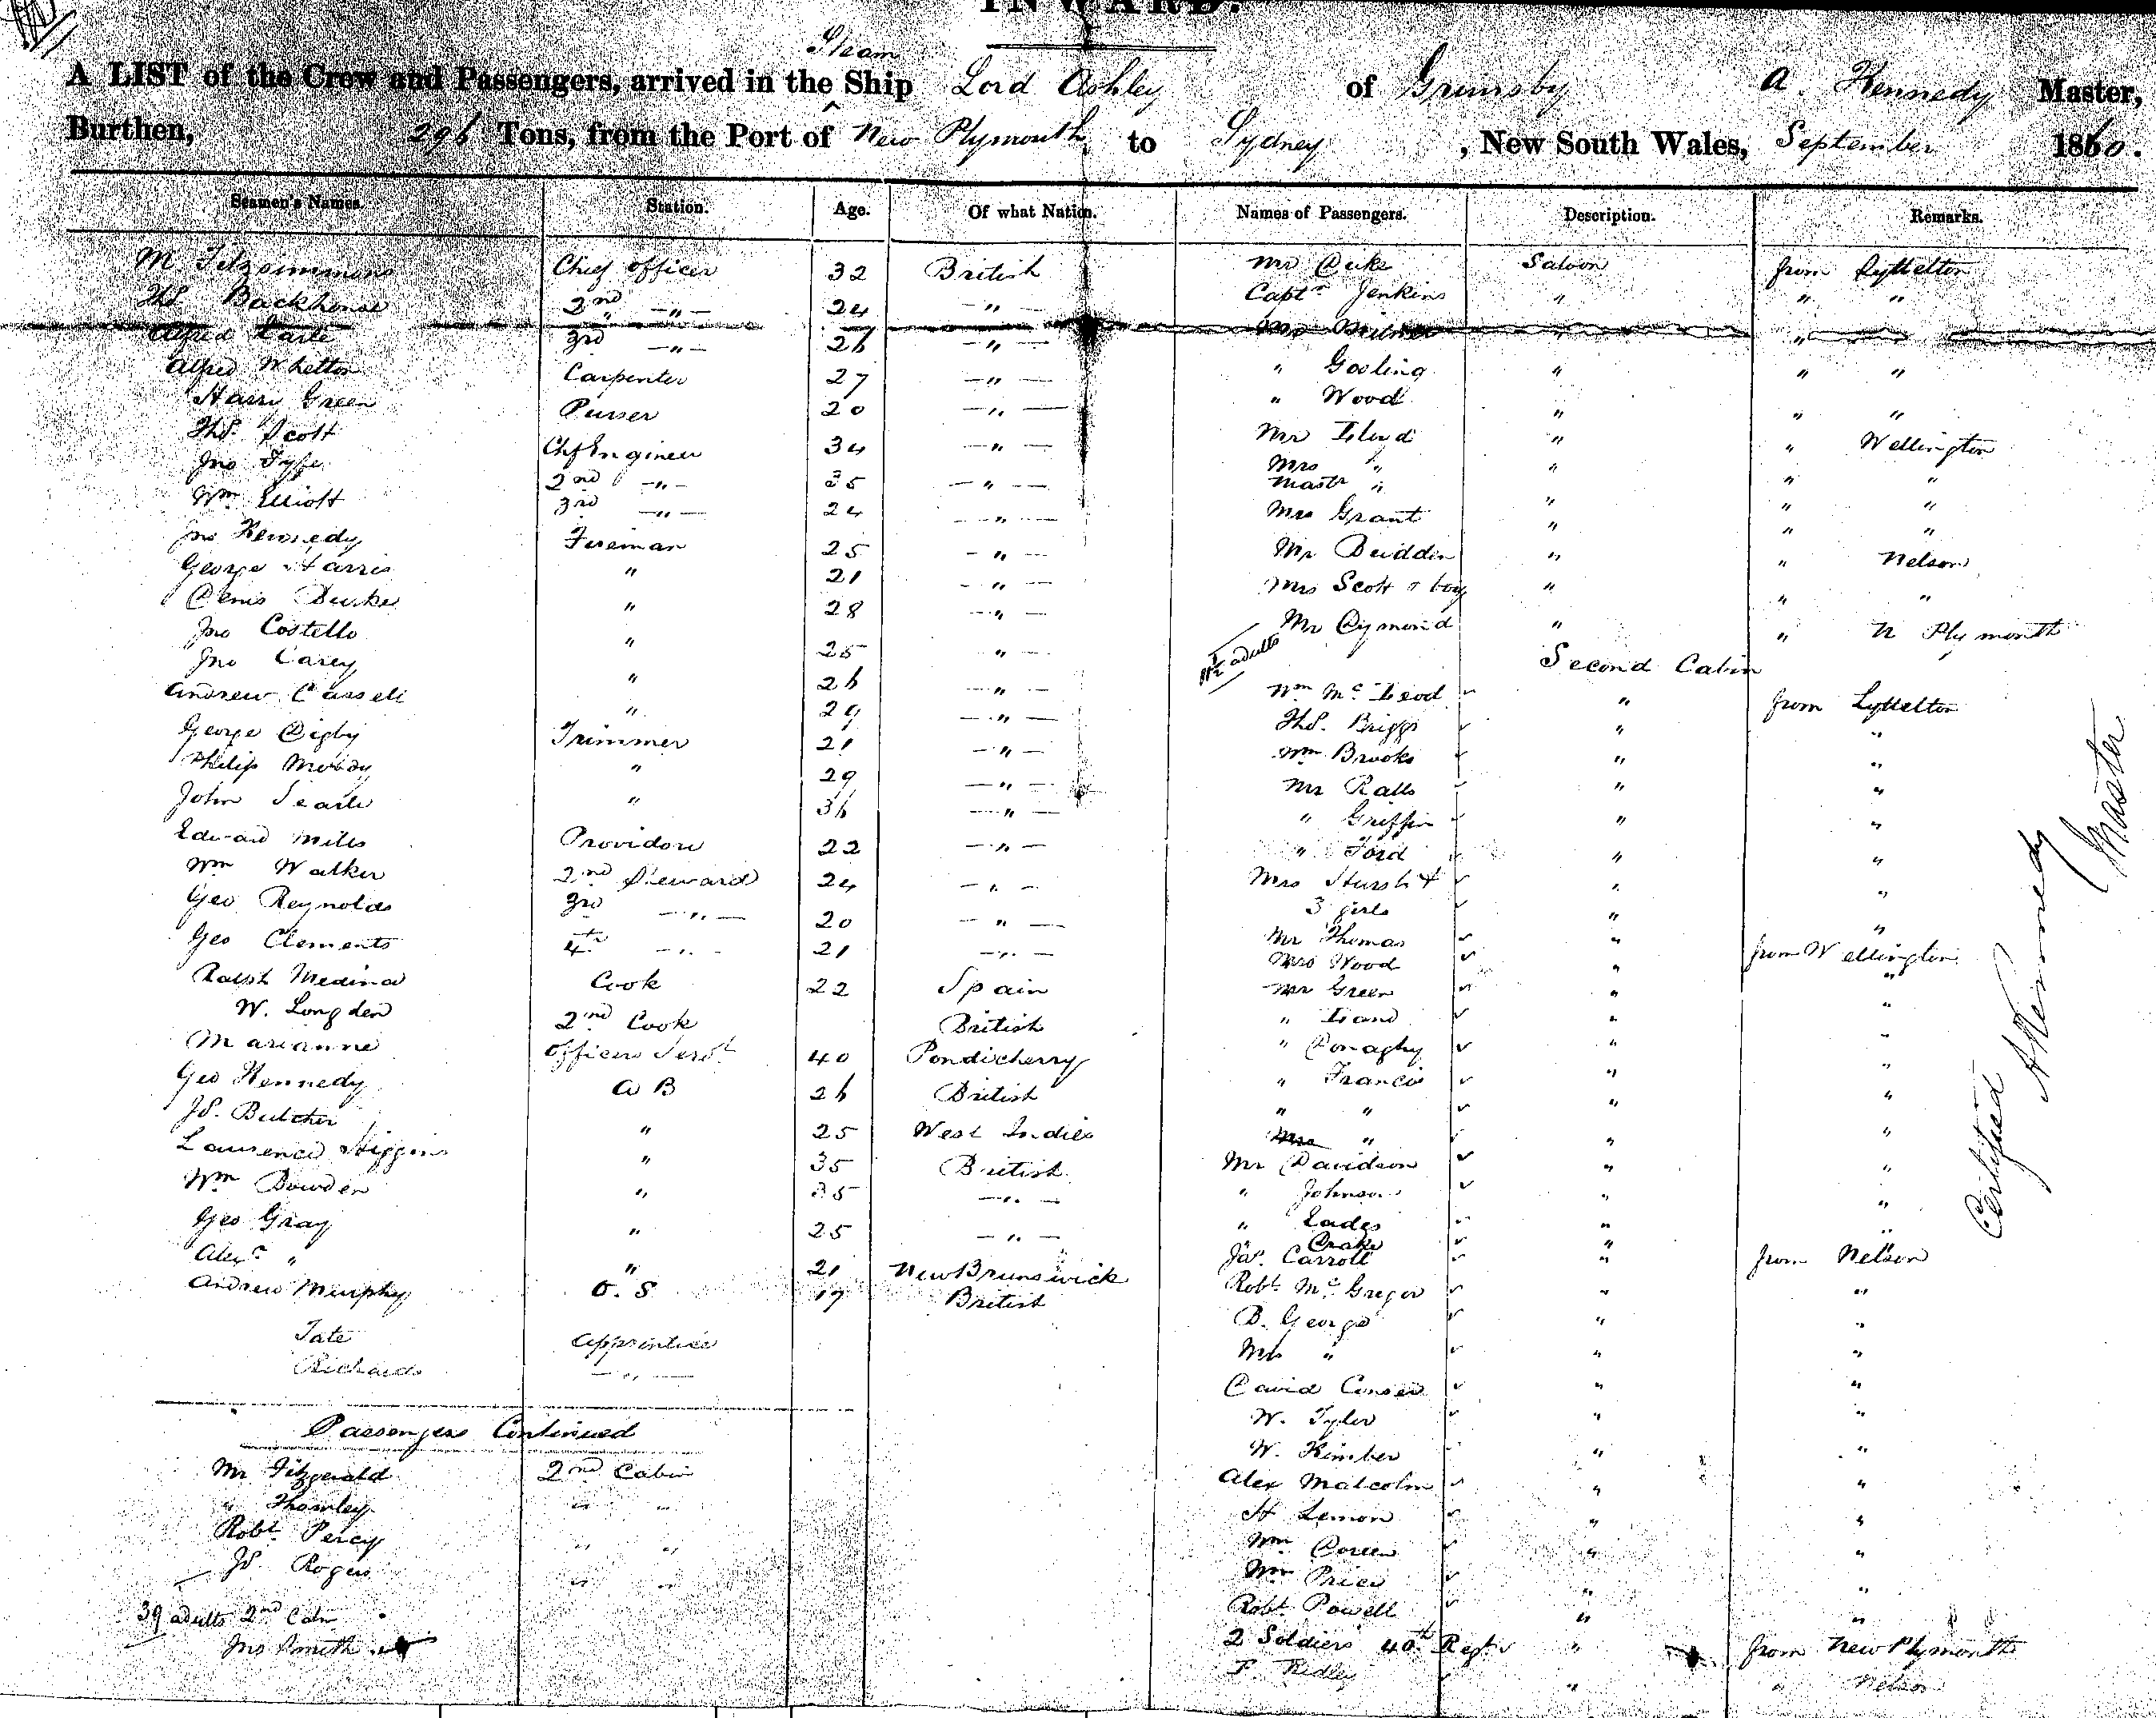 INWARD.
Steam
A LIST of the Crew and Passengers, arrived in the ^ Ship Lord Ashley of Grimsby A. Kennedy Master,
Burthen, 296 Tons, from the Port of New Plymouth to Sydney, New South Wales, September 1860.
Seamen's Names. Station. Age. Of what Nation. Names of Passengers. Description. Remarks.
M Fitzsimmons Chief Officer 32 British
Thos. Backhouse 2nd " 24 "
Alfred 3rd " 26 "
Alfred Whetton Carpenter 27 "
Harry Green Purser 20 "
Thos. Scott Chf Engineer 34 "
Jno Fyfe 2nd " 35 "
Wm Elliott 3rd " 24 "
Jno Kennedy Fireman 25 "
George Harris " 21 "
Denis Burke " 28 "
Jno Costello " 25 "
Jno Carey " 26 "
Andrew Casseli " 29 "
George Digby Trimmer 21 "
Philip " 29 "
John Searle " 36 "
Edward Miles Providore 22 "
Wm Walker 2nd Steward 24 "
Geo Reynolds 3rd " 20 "
Geo Clements 4th " 21 "
Ralph Medina Cook 22 Spain
W. Longden 2nd Cook British
Marianne Officers Servt 40 Pondicherry
Geo Kennedy A B 26 British
Js. Butcher " 25 West Indies
Laurence Higgins " 35 British
Wm Bowden " 35 "
Geo Gray " 25 "
Alexr " " 21 New Brunswick
Andrew Murphy O. S 17 British
Tate Apprentice
Richards "
Passengers Continued
Mr Fitzgerald 2nd Cabin
" Thomley " "
Robt Percy " "
Js Rogers " "
39 adults 2nd Cabn
Jno Smith
Mr Saloon from Lyttelton
Captn Jenkins " " "
Mrs " "
" Gooling " " "
" Wood " " "
Mr " " Wellington
Mrs " " " "
Mastr " " " "
Mrs Grant " " "
Mr " " Nelson
Mrs Scott & boy " " "
Mr Dymond " " N Plymouth
11½ adults
Second Cabin
Wm McLeod " from Lyttelton
Thos. Briggs " "
Wm Brooks " "
Mr Ralls " "
" Griffin " "
" Ford " "
Mrs " "
3 girls " "
Mr Thomas " from Wellington
Mrs Wood " "
Mr Green " "
" " "
" Donaghy " "
" Francis " "
" " " "
Mrs " " "
Mr Davidson " "
" Johnson " "
" Eades " "
" Drake "
Jas. Carroll " from Nelson
Robt McGregor " "
B. George " "
Mrs " " "
David " "
W. Tyler " "
W. Kimber " "
Alex Malcolm " "
H Lemon " "
Wm " "
Wm Price " "
Robt Powell " "
2 Soldiers 40th Regt " from New Plymouth
F. Ridley " " Nelson
Certified A Kennedy
Master